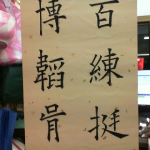 百練挺
博韜骨